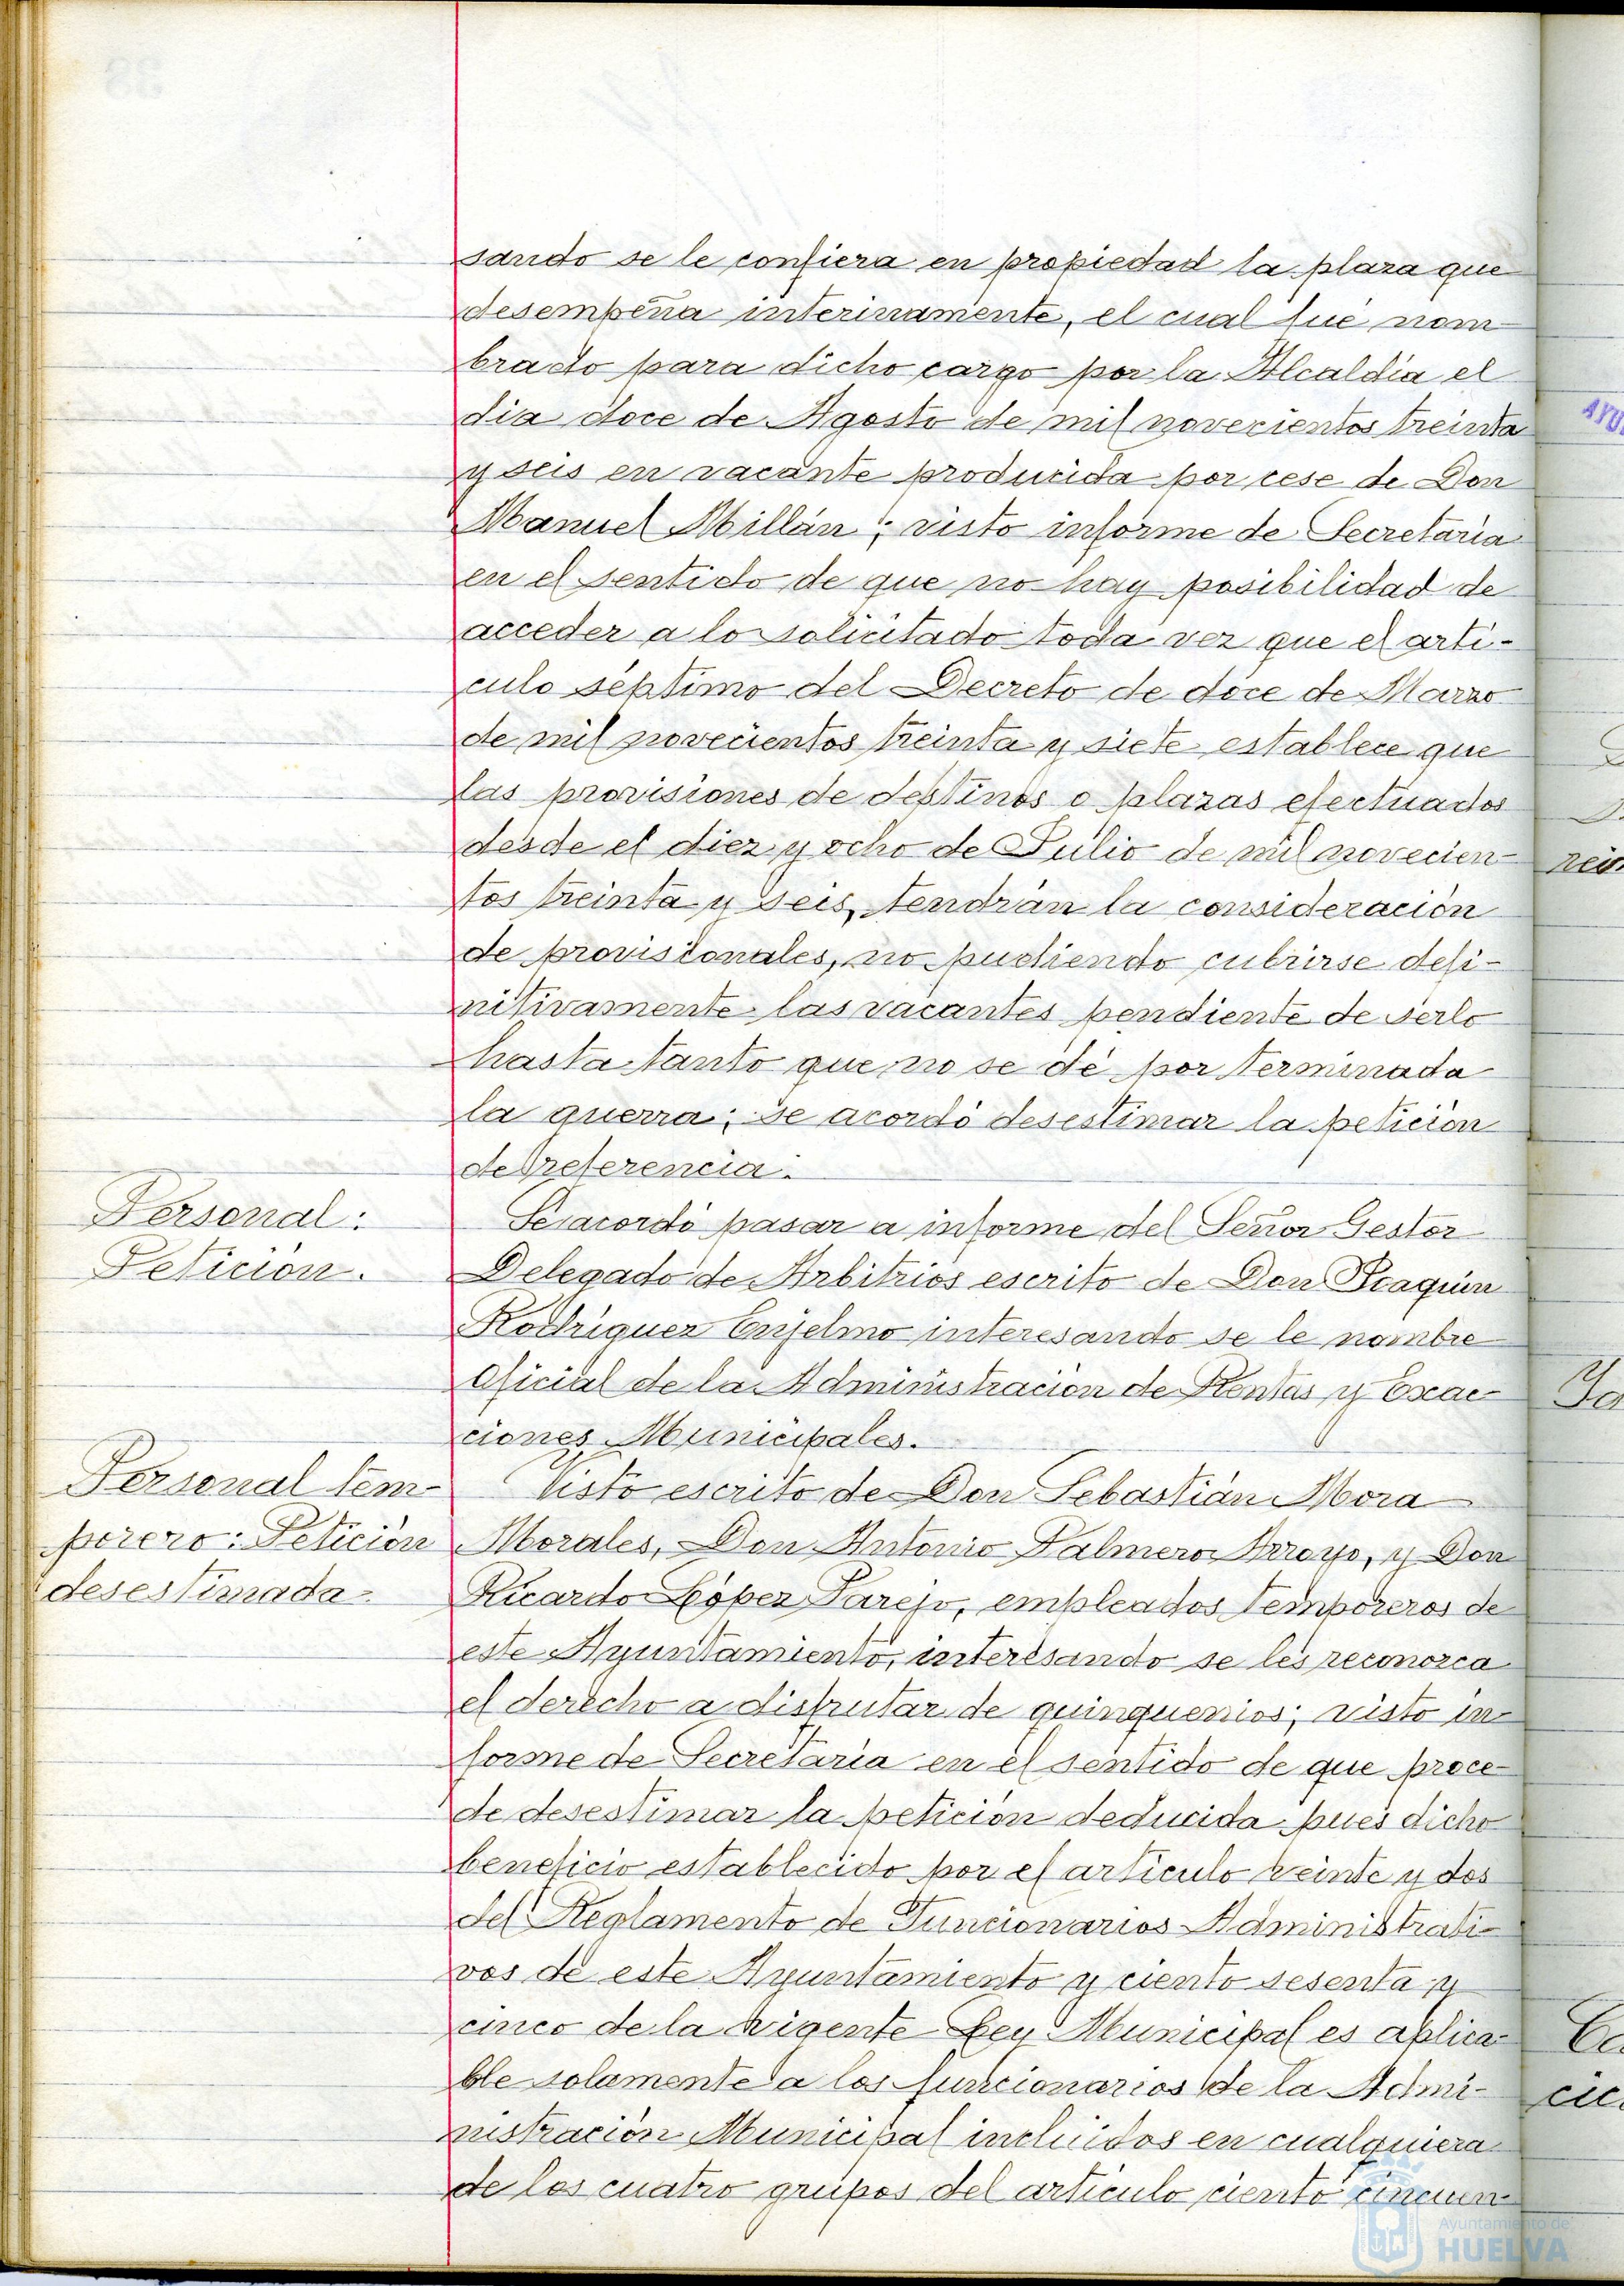 sando se le confiera en propiedad la plaza que
desempeña interinamente, el cual fué nom-
brado para dicho cargo por la Alcaldía el
dia doce de Agosto de mil novecientos treinta
y seis en vacante producida por cese de Don
Manuel Millán; visto informe de Secretaría
en el sentido de que no hay posibilidad de
acceder a lo solicitado toda vez que el artí-
culo séptimo del Decreto de doce de Marzo
de mil novecientos treinta y siete establece que
las provisiones de destinos o plazas efectuados
desde el diez y ocho de Julio de mil novecien-
tos treinta y seis, tendrán la consideración
de provisionales, no pudiendo cubrirse defi-
nitivamente las vacantes pendiente de serlo
hasta tanto que no se dé por terminada
la guerra; se acordó desestimar la petición
de referencia.
Personal:
Petición.
Se acordó pasar a informe del Señor Gestor
Delegado de Arbitrios escrito de Don Joaquín
Rodríguez Enjelmo interesando se le nombre
Oficial de la Administración de Rentas y Exac-
ciones Municipales.
Personal tem-
porero: Petición
desestimada.
Visto escrito de Don Sebastián Mora
Morales, Don Antonio Palmero Arroyo, y Don
Ricardo López Parejo, empleados temporeros de
este Ayuntamiento, interesando se les reconozca
el derecho a disfrutar de quinquenios; visto in-
forme de Secretaría en el sentido de que proce-
de desestimar la petición deducida pués dicho
beneficio establecido por el artículo veinte y dos
del Reglamento de Funcionarios Administrati-
vos de este Ayuntamiento y ciento sesenta y
cinco de la vigente Ley Municipal es aplica-
ble solamente a los funcionarios de la Admi-
nistración Municipal incluidos en cualquiera
de los cuatro grupos del artículo ciento cincuen-
Ayuntamiento de
HUELVA